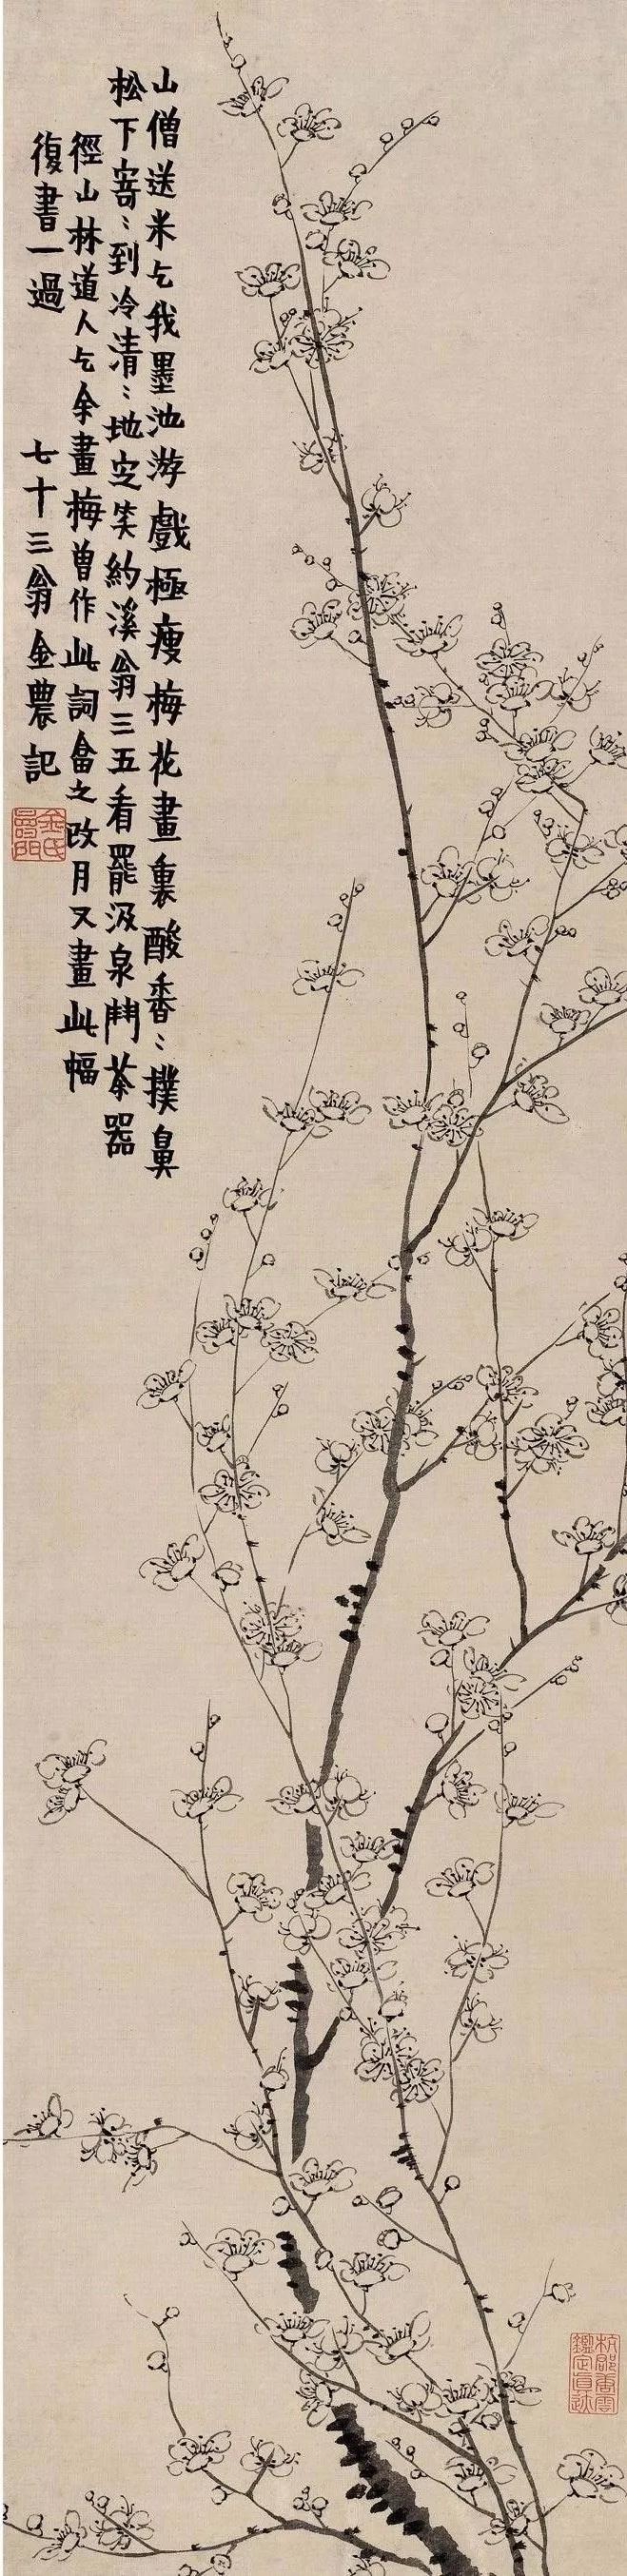 山僧送米乞我墨池游戲極瘦梅花畫裏酸香〻撲鼻
松下寄〻到冷清〻地定笑約溪翁三五看罷汲泉鬥茶器
徑山林道人乞余畫梅曾作此詞畣之改月又畫此幅
復書一過
七十三翁金農記
金氏壽門